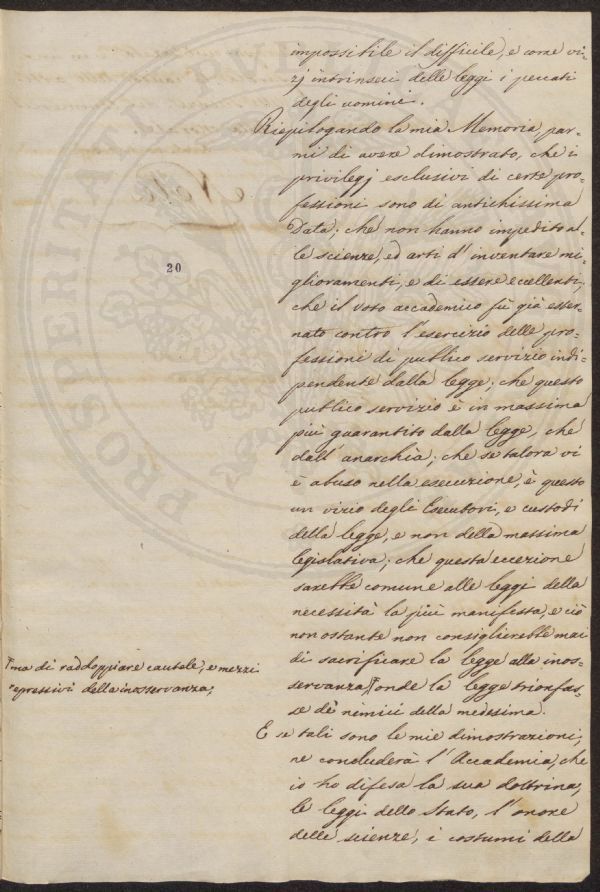 impossibile il difficile, e come vi=
zj intrinseci delle leggi i peccati
degli uomini.
Riepilogando la mia Memoria, par=
mi di avere dimostrato, che i
privilegj esclusivi di certe pro=
fessioni sono di antichissima
Data; che non hanno impedito al=
le scienze, ed arti d'inventare mi=
glioramenti, e di essere eccellenti,
che il voto accademico fù già ester=
nato contro l'esercizio delle pro=
fessioni di publico servizio indi=
pendente dalla legge; che questo
publico servizio è in massima
più guarantito dalla legge, che
dall'anarchia; che se talora vi
è abuso nella esecuzione, è questo
un vizio degli Esecutori, e custodi
della legge, e non della massima
legislativa; che questa eccezione
sarebbe comune alle leggi della
necessità la più manifesta, e ciò
non ostante non consiglierebbe mai
di sacrificare la legge alla inos=
servanza, onde la legge trionfas=
se de' nimici della medesima.
E se tali sono le mie dimostrazioni,
ne concluderà l'Accademia, che
io ho difesa la sua dottrina,
le leggi dello Stato, l'onore
delle scienze, i costumi della
ma di raddoppiare cautele, e mezzi
repressivi della inosservanza,
20
PROSPERITATI PVBLICAE